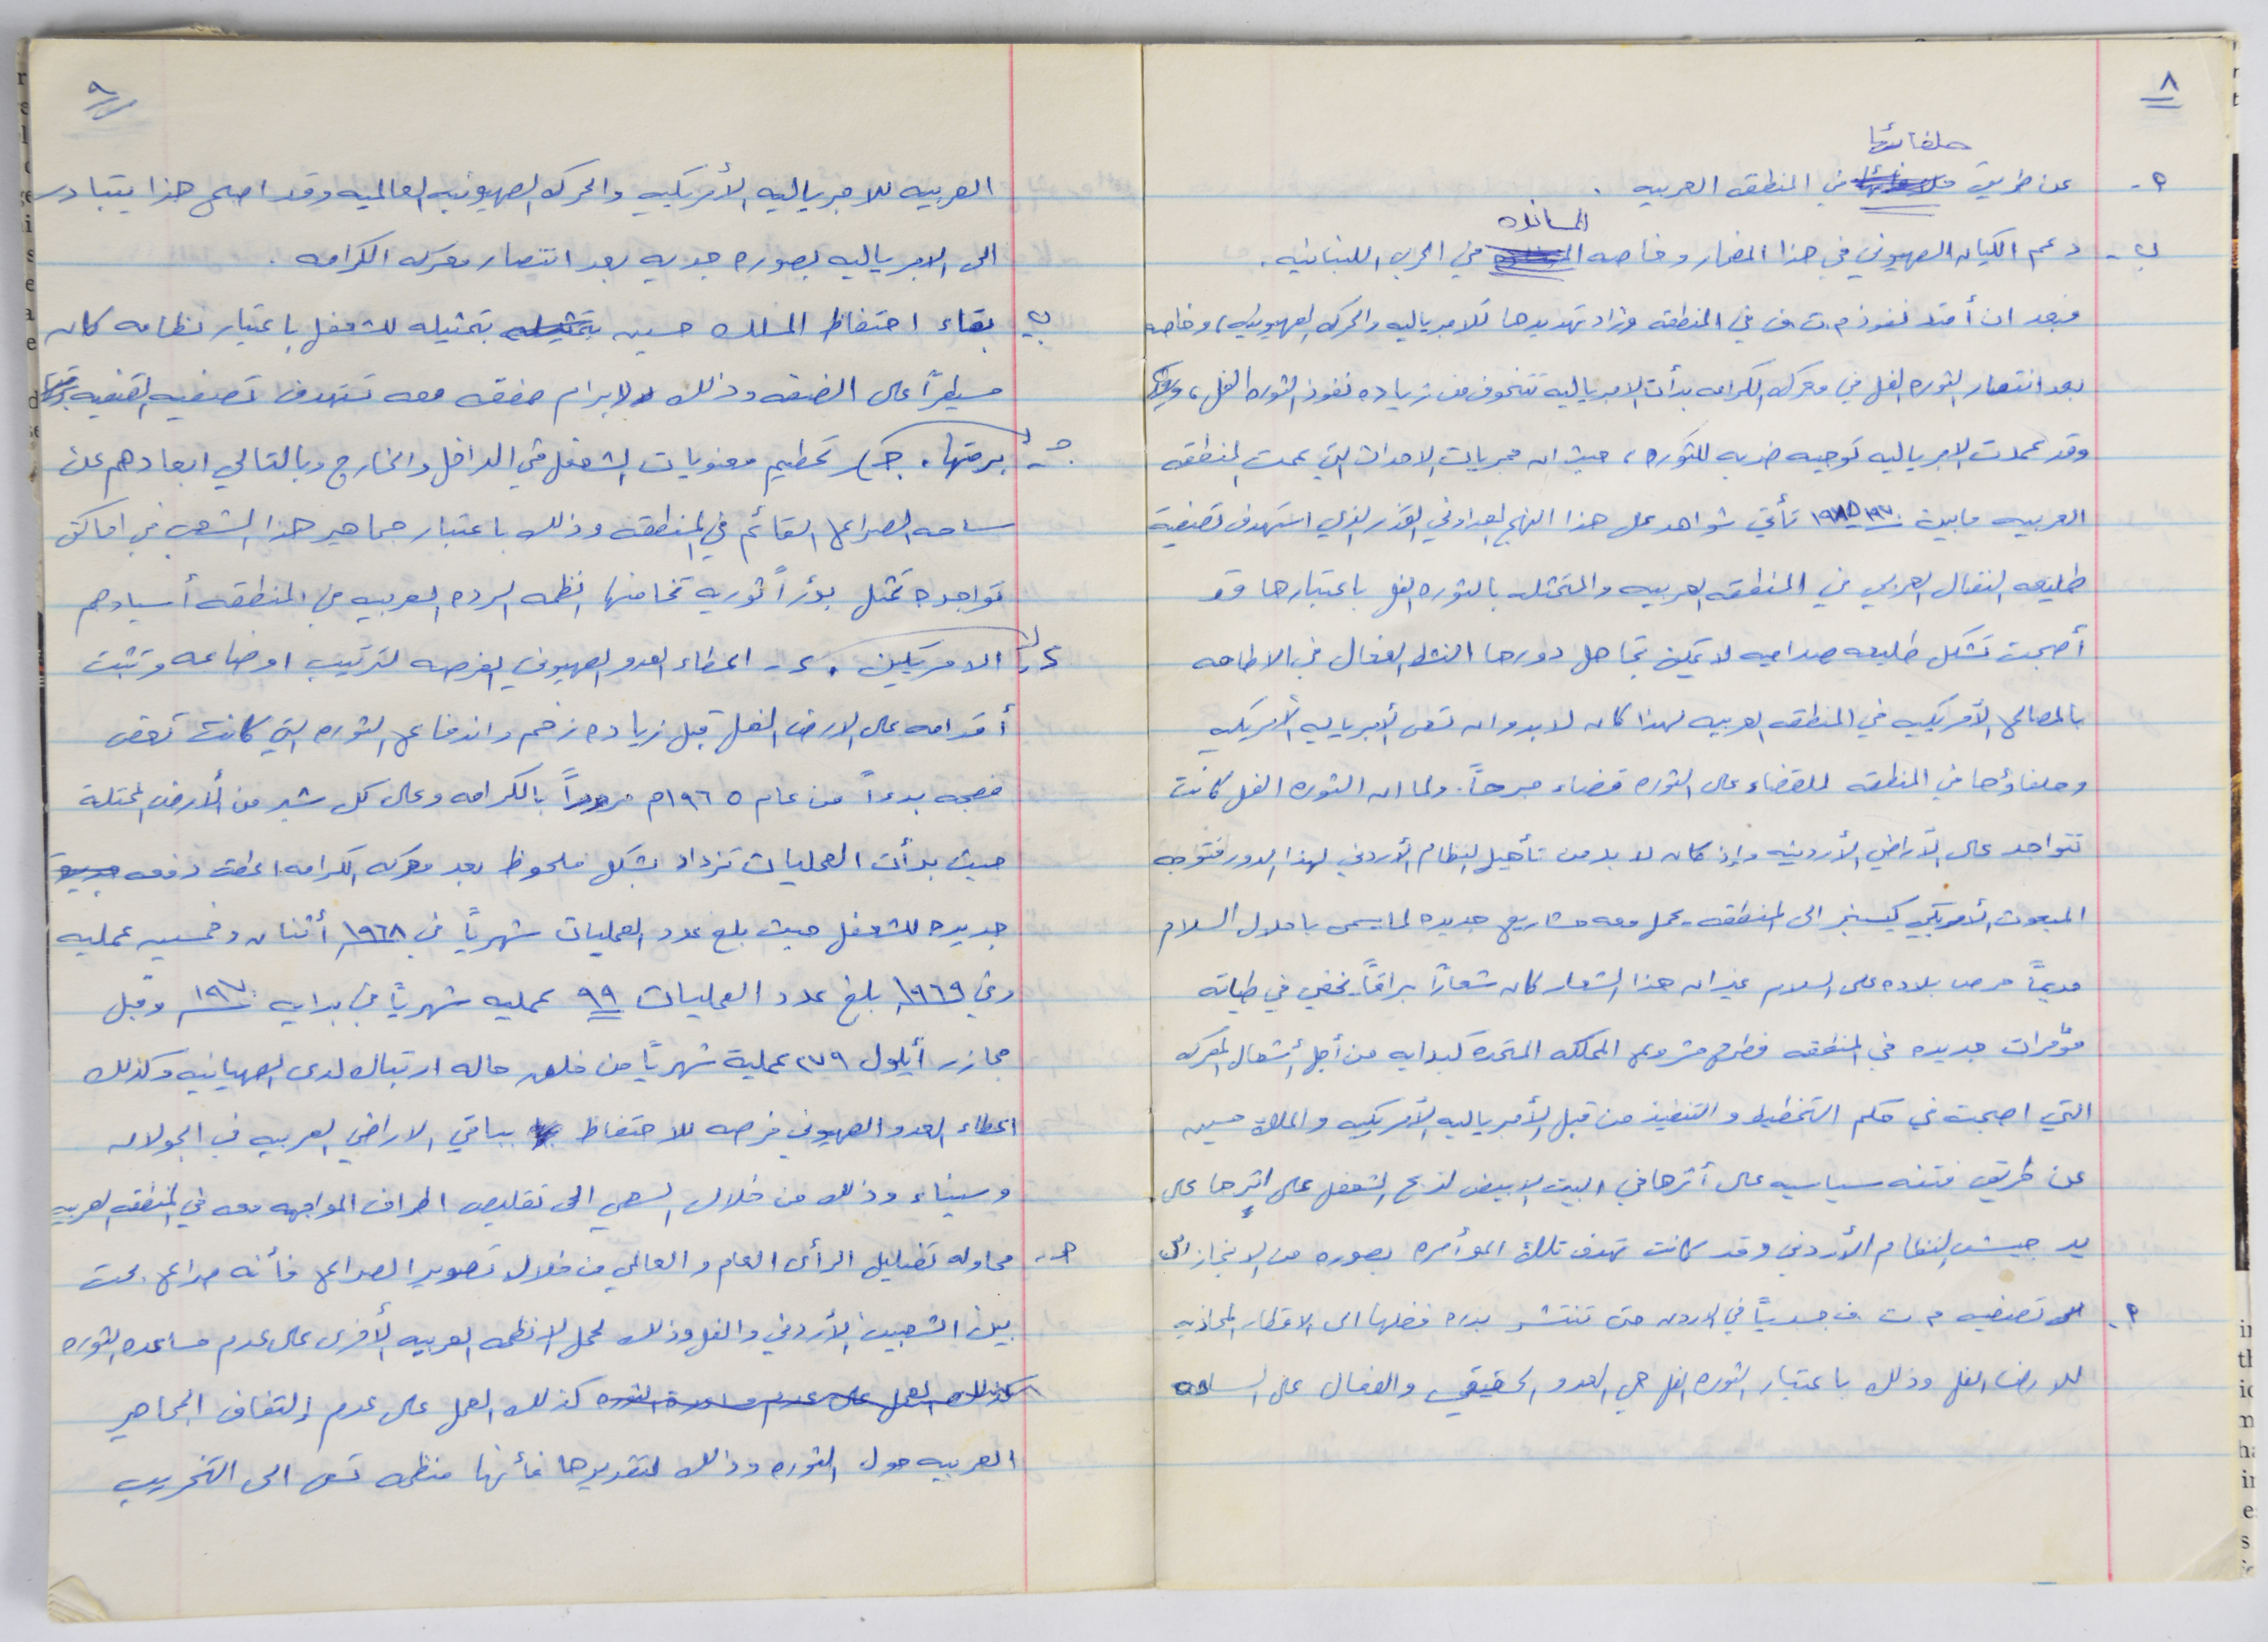 ٨
حلفائها
٢- عن طريق في المنطقه العربيه .
المسانده
ب- دعم الكيان الصهيوني في هذا المضمار وخاصه في الحرب اللبنانيه .
فبعد ان أمتد نفوذ م.ت.ف في المنطقه وزاد تهديدها للامبرياليه والحركه الصهيونيه، وخاصه
بعد انتصار الثوره الفل في معركه الكرامه بدأت الامبرياليه تتخوف من زياده نفوذ الثوره الفل،
وقد عمدت الامبرياليه توجيه ضربه للثوره، حيث ان مجريات الاحداث التي عمت المنطقه
العربيه مابين تأتي شواهد على هذا النهج العدواني القذر الذي استهدف تصفية
طليعه النضال العربي في المنطقه العربيه والمتمثله بالثوره الفل باعتبارها قد
أصبحت تشكل طليعه صداميه لا يمكن تجاهل دورها النشط الفعال في الاطاحه
بالمصالح الأمريكيه في المنطقه العربيه لهذا كان لا بد وان تسعى الأمبرياليه الأمريكيه
وحلفاؤها في المنطقه للقضاء على الثوره قضاء مبرحاً. ولما ان الثوره الفل كانت
تتواجد على الأراضي الأردنيه وإذ كان لا بد من تأهيل النظام الأردني لهذا الدور فتوجه
المبعوث الأمريكي كيسنجر الى المنطقه يحمل معه مشاريع جديده لما يسمى باحلال السلام
مدعيّاً حرص بلاده على السلام غير ان هذا الشعار كان شعاراً براقاً يخفي في طياته
مؤمرات جديده في المنطقه فطرح مشروع المملكه المتحدة كبدايه من أجل أشعال المعركه
التي اصبحت في حكم التخطيط والتنفيذ من قبل الأمبرياليه الأمريكيه والملك حسين
عن طريق فتنه سياسيه على أثرها في البيت الابيض لذبح الشعفل على إثرها على
يد جيش النظام الأردني وقد كانت تهدف تلك المؤأمره بصوره من الايجاز الى
٢- تصفيه م ت ف جسديّاً في الاردن حتى تنتشر بذره فضلها الى الاقطار المحاذيه
للارض الفل وذلك باعتبار الثوره الفل هي العدو الحقيقي والفعال على الساحه
٩
العربيه للامبرياليه الأمريكيه والحركه الصهيونيه العالميه وقد اصبح هذا يتبادر
الى الامبرياليه بصوره جديه بعد انتصار معركه الكرامه .
ب- بقاء احتفاظ الملك حسين بتمثيله للشعفل باعتبار نظامه كان
مسيطراً على الضفه وذلك لابرام صفقه معه تستهدف تصفيه القضيه برمتها
جـ- برمتها. جـ) تحطيم معنويات الشعفل في الداخل والخارج وبالتالي ابعادهم عن
ساحه الصراع القائم في المنطقه وذلك باعتبار جماهير هذا الشعب في اماكن
تواجده تمثل بؤراً ثوريه تخافنها انظمه الرده العربيه في المنطقه أسيادهم
د- الامريكين . د- اعطاء العدو الصهيوني الفرصه لترتيب اوضاعه وتثبت
أقدامه على الارض الفل قبل زياده زخم واندفاع الثوره التي كانت تقض
مضجعه بدءاً من عام ١٩٦٥م مروراً بالكرامه وعلى كل شبر من الأرض المحتلة
حيث بدأت العمليات تزداد بشكل ملحوظ بعد معركه الكرامه اعطت دفعه
جديده للشعفل حيث بلغ عدد العمليات شهريّاً في ١٩٦٨ أثنان وخمسين عمليه
وفي ١٩٦٩ بلغ عدد العمليات ٩٩ عمليه شهريّاً في بدايه ١٩٧٠ وقبل
مجازر أيلول ٢٧٩ عملية شهريّاً من خلق حاله ارتباك لدى الصهيانيه وكذلك
اعطاء العدو الصهيوني فرصه للاحتفاظ بباقي الاراضي العربيه في الجولان
وسيناء وذلك من خلال السعي الى تقليص اطراف المواجهه معه في المنطقه العربيه
هـ- محاوله تضليل الرأى العام والعالمي من خلال تصوير الصراع فأنه صراع بحت
بين الشعبين الأردني والفل وذلك لحمل الانظمه العربيه الأخرى على عدم مساعده الثوره
كذلك العمل على عدم مساعدة الثوره كذلك العمل على عدم إلتفاف الجماهير
العربيه حول الثوره وذلك لتقديرها فأنها منظمه تسعى الى التخريب